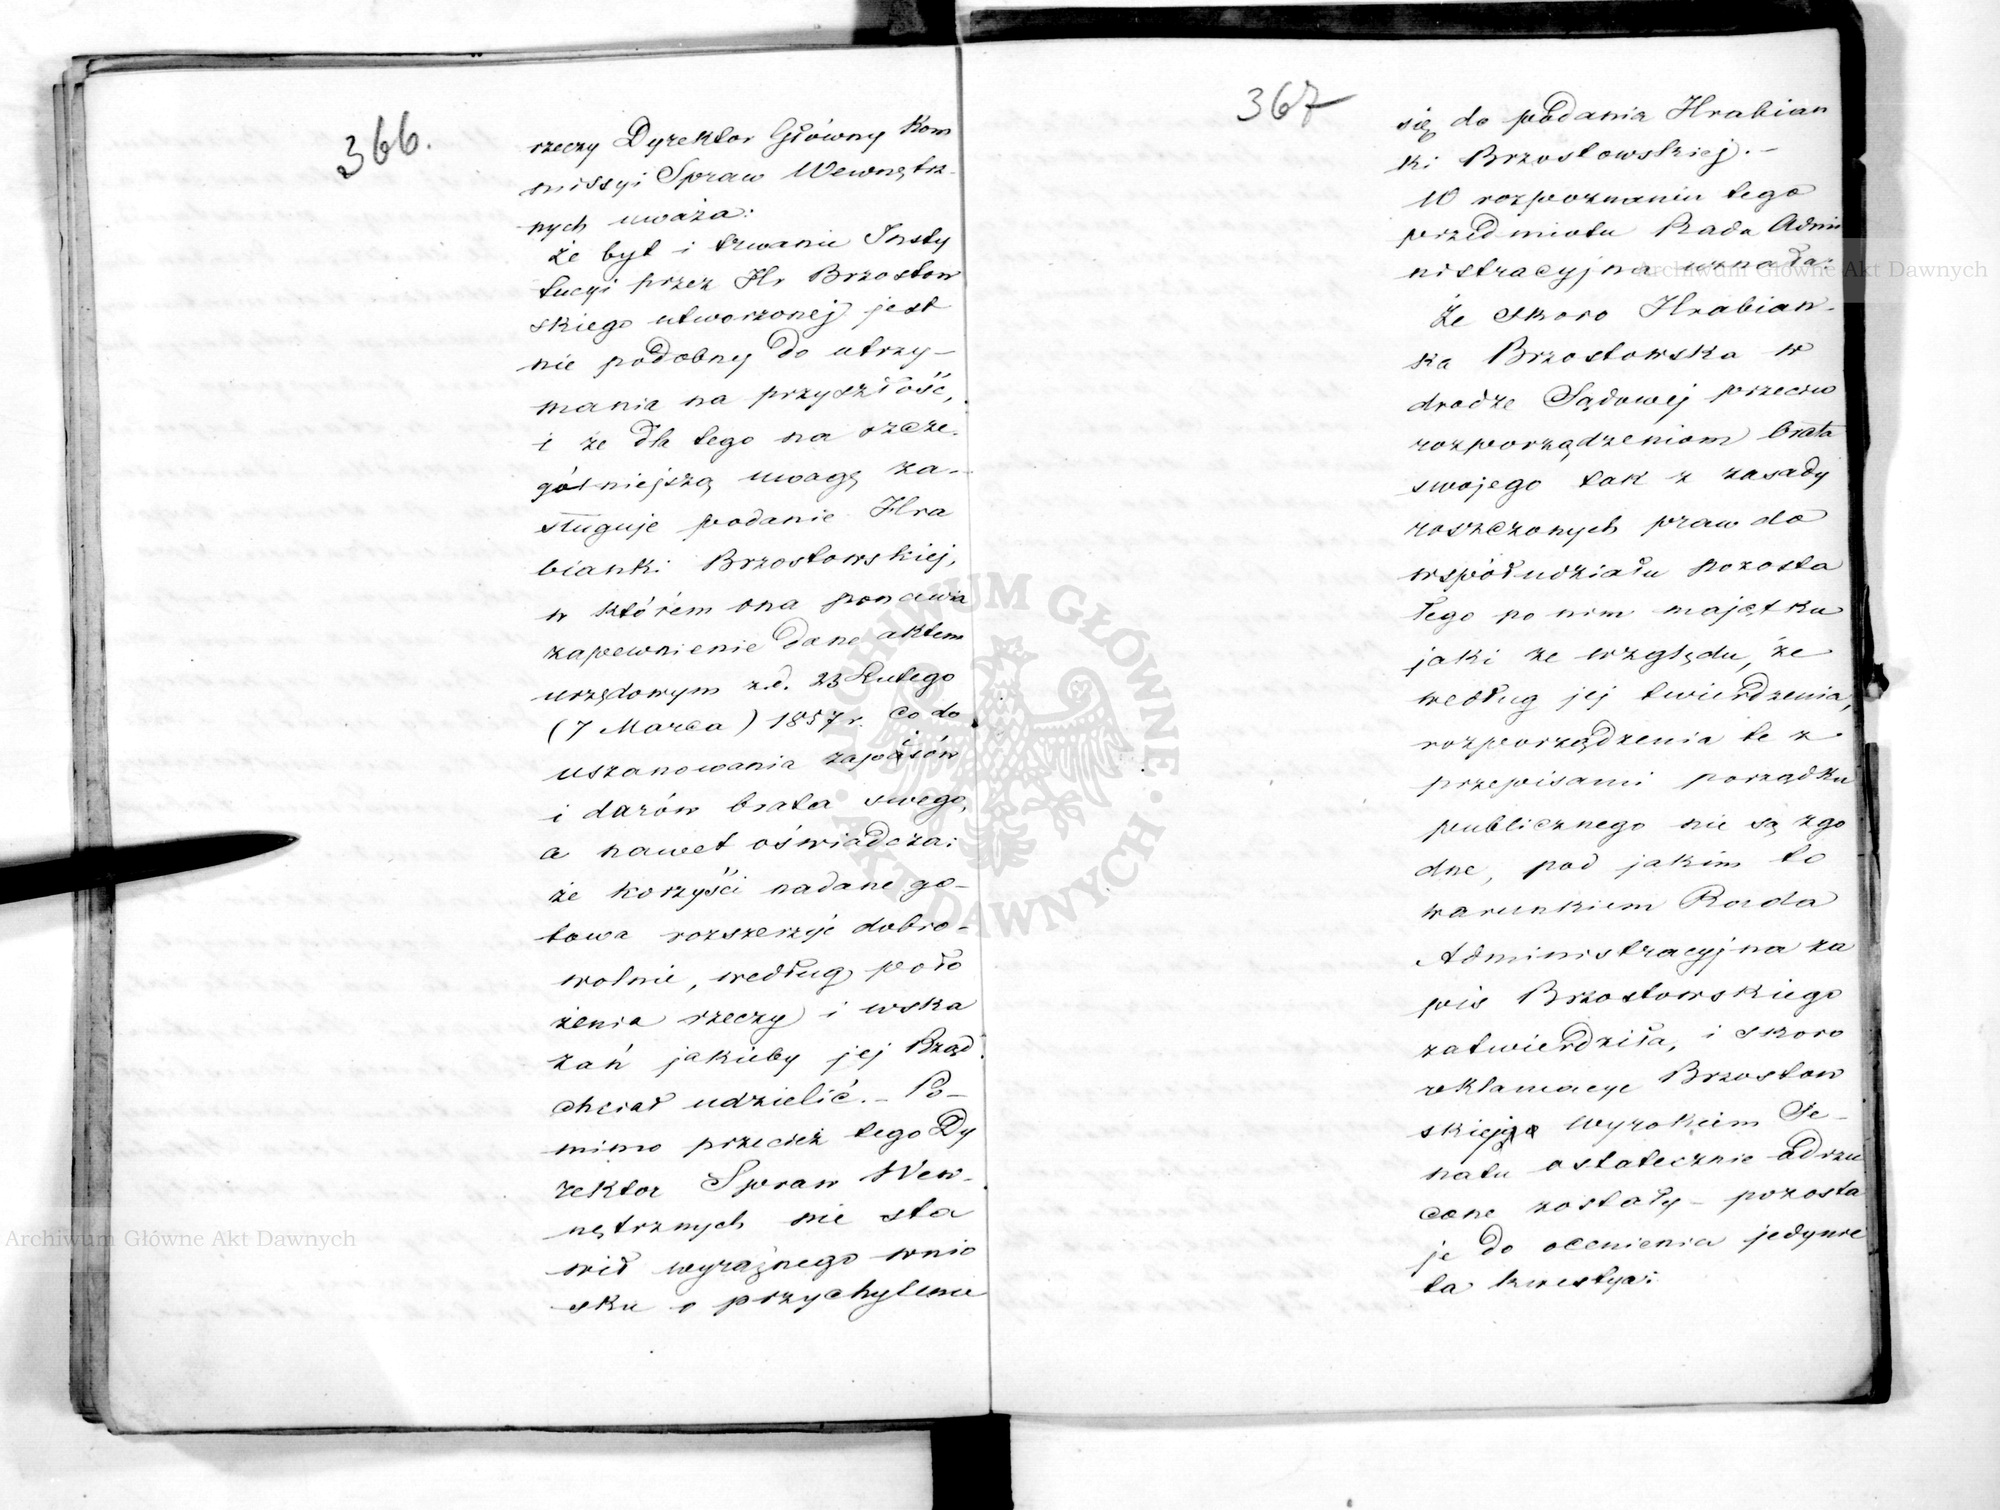 366.
rzeczy Dyrektor Główny Kom
missyi Spraw Wewnętrz-
nych uważa:
że byt i trwanie Insty
tucyi przez Hr Brzostow
skiego utworzonej jest
nie podobny do utrzy-
mania na przyszłość,
i że dla tego na szcze-
gólniejszą uwagę za-
sługuje podanie Hra
bianki Brzostowskiej,
w którem ona ponawia
zapewnienie dane aktem
urzędowym z.d. 23 Lutego
(7 Marca) 1857 r. co do
uszanowania zapisów
i darów brata swego,
a nawet oświadcza:
że korzyści nadane go-
towa rozszerzyć dobro-
wolnie, według poło
żenia rzeczy i wska
zań jakieby jej Rząd
chciał udzielić. - Po-
mimo przecież tego Dy
rektor Spraw Wew-
nętrznych nie sta
wił wyraźnego wnio
sku o przychylenie
367
się do podania Hrabian
ki Brzostowskiej. -
W rozpoznaniu tego
przedmiotu Rada Admi
nistracyjna uznała:
Że skoro Hrabian-
ka Brzostowska w
drodze Sądowej przeciw
rozporządzeniom brata
swojego tak z zasady
roszczonych praw do
współudziału pozosta
łego po nim majątku
jaki ze względu, że
według jej twierdzenia,
rozporządzenia te z
przepisami porządku
publicznego nie są zgo
dne, pod jakim to
warunkiem Rada
Administracyjna za
pis Brzostowskiego
zatwierdziła, i skoro
reklamacye Brzostow
skiej wyrokiem Se-
natu ostatecznie odrzu
cone zostały - pozosta
je do ocenienia jedynie
ta kwestya:
ARCHIWUM GŁÓWNE
AKT DAWNYCH
Archiwum Główne Akt Dawnych
Archiwum Główne Akt Dawnych